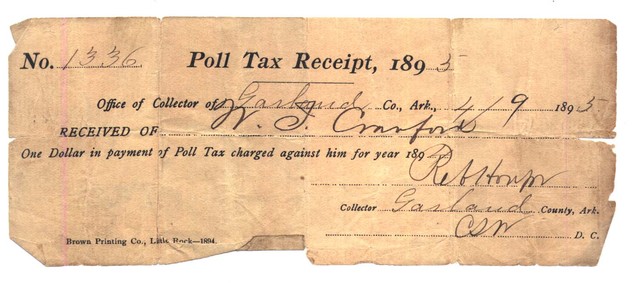 No. 1336. Poll Tax Receipt, 1895
Office of Collector of Garland Co., Ark., 4/9 1895
RECEIVED OF W. I. Crawford
One Dollar in payment of Poll Tax charged against him for year 189
Collector Garland County, Ark.
CSW D. C.
Brown Printing Co., Little Rock—1894.